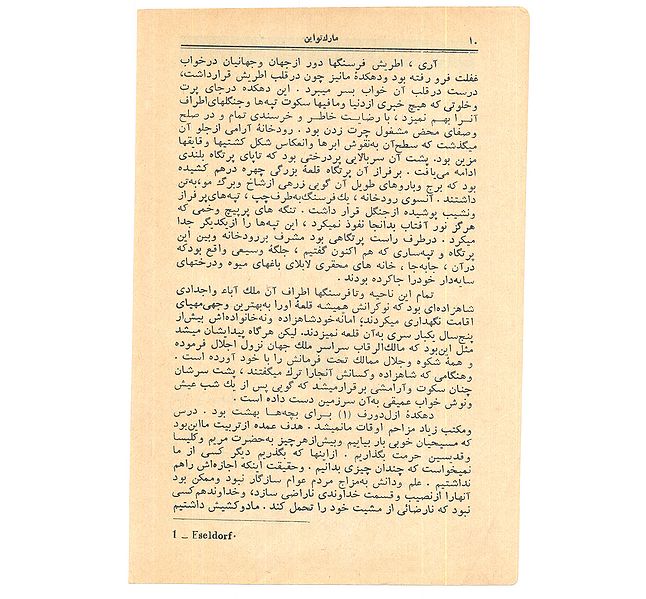 ۱۰
مارك‌تواین
آری ، اطریش فرسنگها دور ازجهان وجهانیان درخواب
غفلت فرو رفته بود ودهکدهٔ مانیز چون درقلب اطریش قرارداشت،
درست درقلب آن خواب بسر میبرد . این دهکده درجای پرت
وخلوتی که هیچ خبری ازدنیا ومافیها سکوت تپه‌ها وجنگلهای‌اطراف
آنـرا بهـم نمیزد ، با رضـایت خاطـر و خرسندی تمام و در صلح
وصفای محض مشغول چرت زدن بود . رودخانهٔ آرامی ازجلو آن
میگذشت که سطح‌آن به‌نقوش ابرها وانعکاس شکل کشتیها وقایقها
مزین بود. پشت آن سربالایی پردرختی بود که تاپای پرتگاه بلندی
ادامه می‌یافت . برفراز آن پرتگاه قلعهٔ بزرگی چهره درهم کشیده
بود که برج وباروهای طویل آن گویی زرهی ازشاخ وبرگ مو،به‌تن
داشتند . آنسوی رودخانه ، یك‌فرسنگ‌به‌طرف‌چپ ، تپه‌های‌پرفراز
ونشیب پوشیده ازجنگل قرار داشت . تنگه های پرپیچ وخمی که
هرگز نور آفتاب بدانجا نفوذ نمیکرد ، این تپه‌ها را ازیکدیگر جدا
میکرد . درطرف راست پرتگاهی بود مشرف بررودخانه وبین این
پرتگاه و تپه‌ساری که هم اکنون گفتیم ، جلگهٔ وسیعی واقع بودکه
درآن ، جابه‌جا ، خانه های محقری لابلای باغهای میوه ودرختهای
سایه‌دار خودرا جاکرده بودند .
تمام این ناحیه وتافرسنگها اطراف آن ملك آباء واجدادی
شاهزاده‌ای بود که نوکرانش همیشه قلعهٔ اورا به‌بهترین وجهی‌مهیای
اقامت نگهداری میکردند، امانه‌خودشاهزاده ونه‌خانواده‌اش بیش‌از
پنج‌سال یکبار سری به‌آن قلعه نمیزدند. لیکن هرگاه پیدایشان میشد
مثل این‌بود که مالك‌الرقاب سراسر ملك جهان نزول اجلال فرموده
و همهٔ شکوه وجلال ممالك تحت فرمانش را با خود آورده است .
وهنگامی که شاهزاده وکسانش آنجارا ترك میگفتند ، پشت سرشان
چنان سکوت وآرامشی برقرارمیشد که گویی پس از یك شب عیش
ونوش خواب عمیقی به‌آن سرزمین دست داده است .
دهکدهٔ ازل‌دورف (۱) بـرای بچه‌ها بهشت بود . درس
ومکتب زیاد مزاحم اوقات مانمیشد . هدف عمده ازتربیت مااین‌بود
که مسیحیان خوبی بار بیاییم وبیش‌ازهرچیز به‌حضرت مریم وکلیسا
وقدیسین حرمت بگذاریم . ازاینها که بگذریم دیگر کسی از ما
نمیخواست که چندان چیزی بدانیم . وحقیقت اینکه اجازه‌اش راهم
نداشتیم . علم ودانش به‌مزاج مردم عوام سازگار نبود وممکن بود
آنهارا ازنصیب وقسمت خداوندی ناراضی سازد، وخداوندهم‌کسی
نبود که نارضائی از مشیت خود را تحمل کند . مادوکشیش داشتیم
1 – Eseldorf·